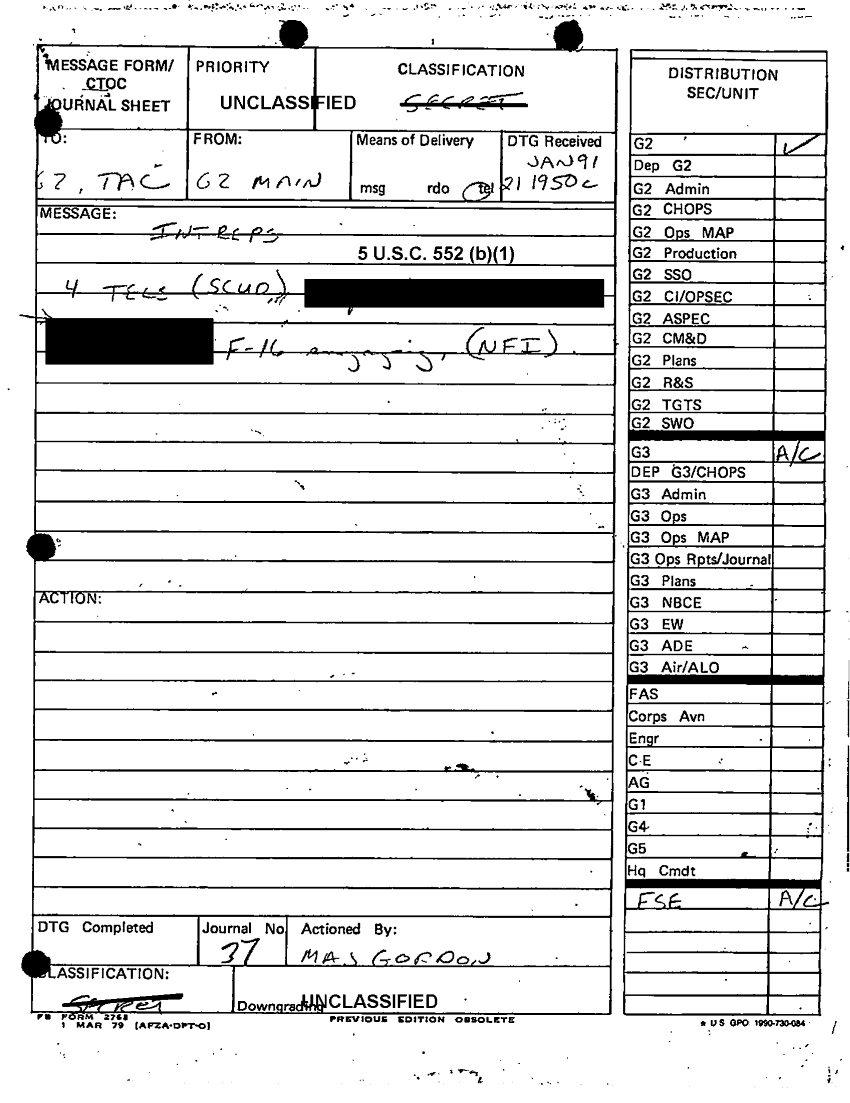 MESSAGE FORM/
CTOC
JOURNAL SHEET
PRIORITY
CLASSIFICATION
UNCLASSIFIED
SECRET
TO:
G2, TAC
FROM:
G2 MAIN
Means of Delivery
msg rdo tel
DTG Received
JAN 91
21 1950 C
MESSAGE:
INTREPS
5 U.S.C. 552 (b)(1)
4 TELS (SCUD)
F-16 engaging, (NFI).
ACTION:
DTG Completed
Journal No
37
Actioned By:
MAJ GORDON
CLASSIFICATION:
SECRET
Downgrading
UNCLASSIFIED
FB FORM 2768
1 MAR 79 [AFZA-DPT-O]
PREVIOUS EDITION OBSOLETE
DISTRIBUTION
SEC/UNIT
G2 ✓
Dep G2
G2 Admin
G2 CHOPS
G2 Ops MAP
G2 Production
G2 SSO
G2 CI/OPSEC
G2 ASPEC
G2 CM&D
G2 Plans
G2 R&S
G2 TGTS
G2 SWO
G3 A/C
DEP G3/CHOPS
G3 Admin
G3 Ops
G3 Ops MAP
G3 Ops Rpts/Journal
G3 Plans
G3 NBCE
G3 EW
G3 ADE
G3 Air/ALO
FAS
Corps Avn
Engr
C-E
AG
G1
G4
G5
Hq Cmdt
FSE A/C
* U S GPO 1990-730-084